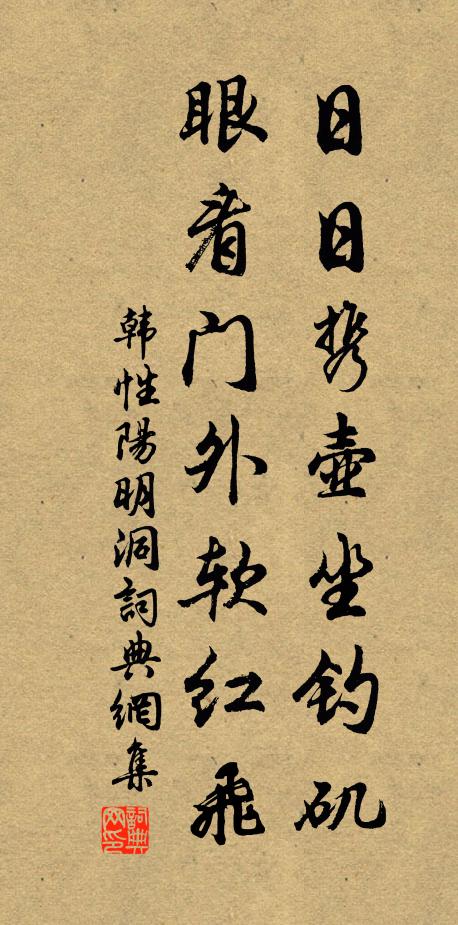 日日携壶坐钓矶
眼看门外软红飞
韩性陽明洞詞典網集
詞典网印